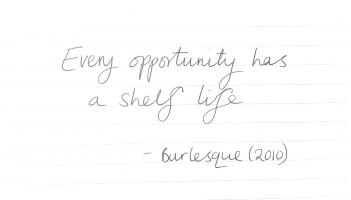 Every opportunity has
a shelf life
- Burlesque (2010)